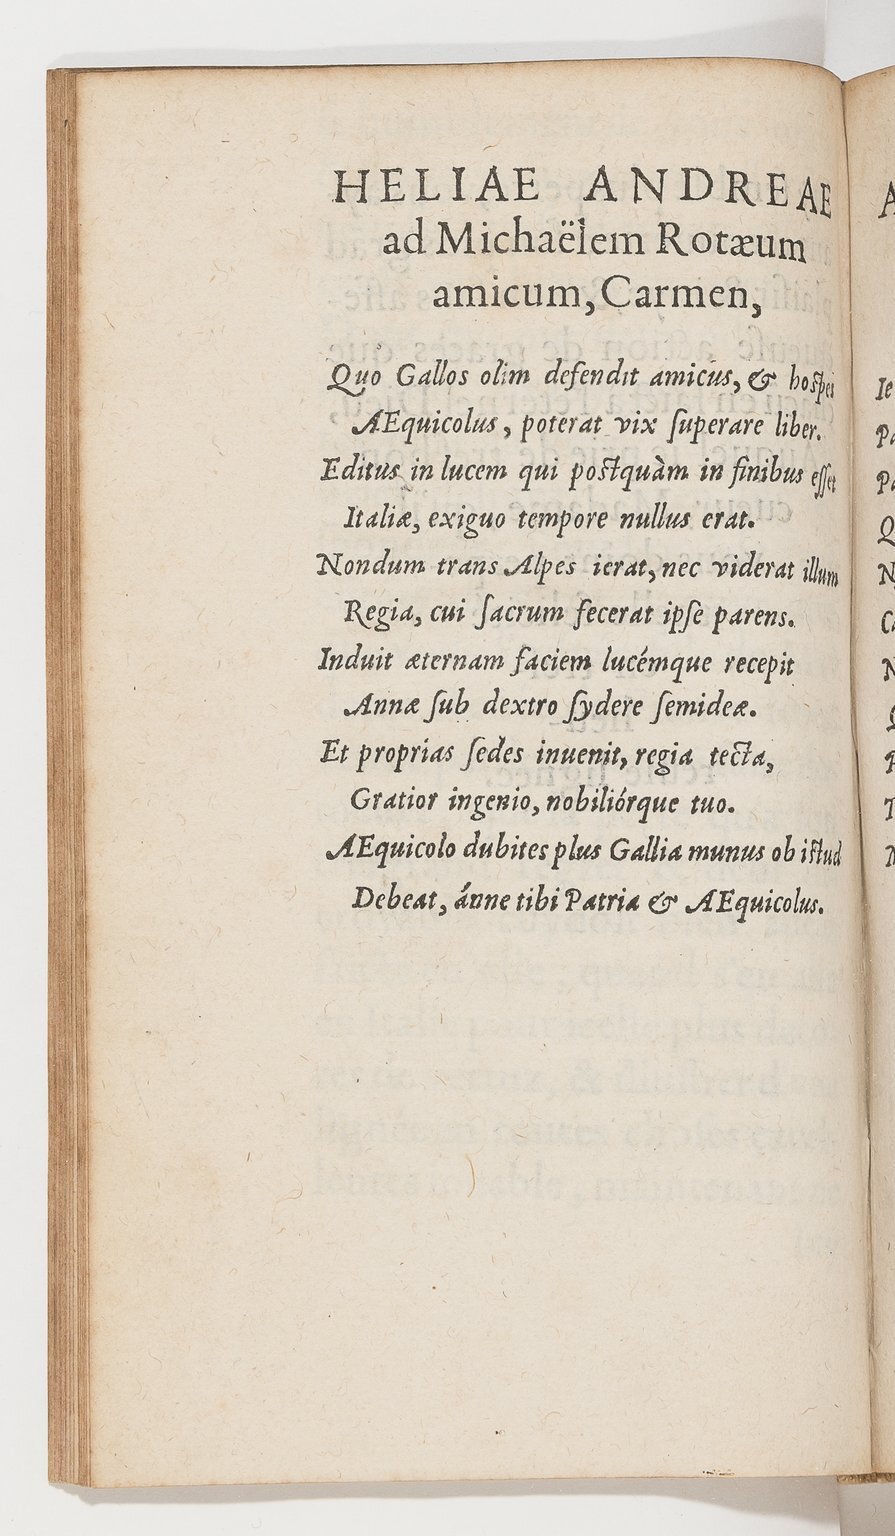 HELIAE ANDREAE
ad Michaëlem Rotæum
amicum, Carmen,
Quo Gallos olim defendit amicus, & hospes
AEquicolus, poterat vix ſuperare liber.
Editus in lucem qui poſtquàm in finibus eſſet
Italiæ, exiguo tempore nullus erat.
Nondum trans Alpes ierat, nec viderat illum
Regia, cui ſacrum fecerat ipſe parens.
Induit æternam faciem lucémque recepit
Annæ ſub dextro ſydere ſemideæ.
Et proprias ſedes inuenit, regia tecta,
Gratior ingenio, nobiliórque tuo.
AEquicolo dubites plus Gallia munus ob iſtud
Debeat, ánne tibi Patria & AEquicolus.